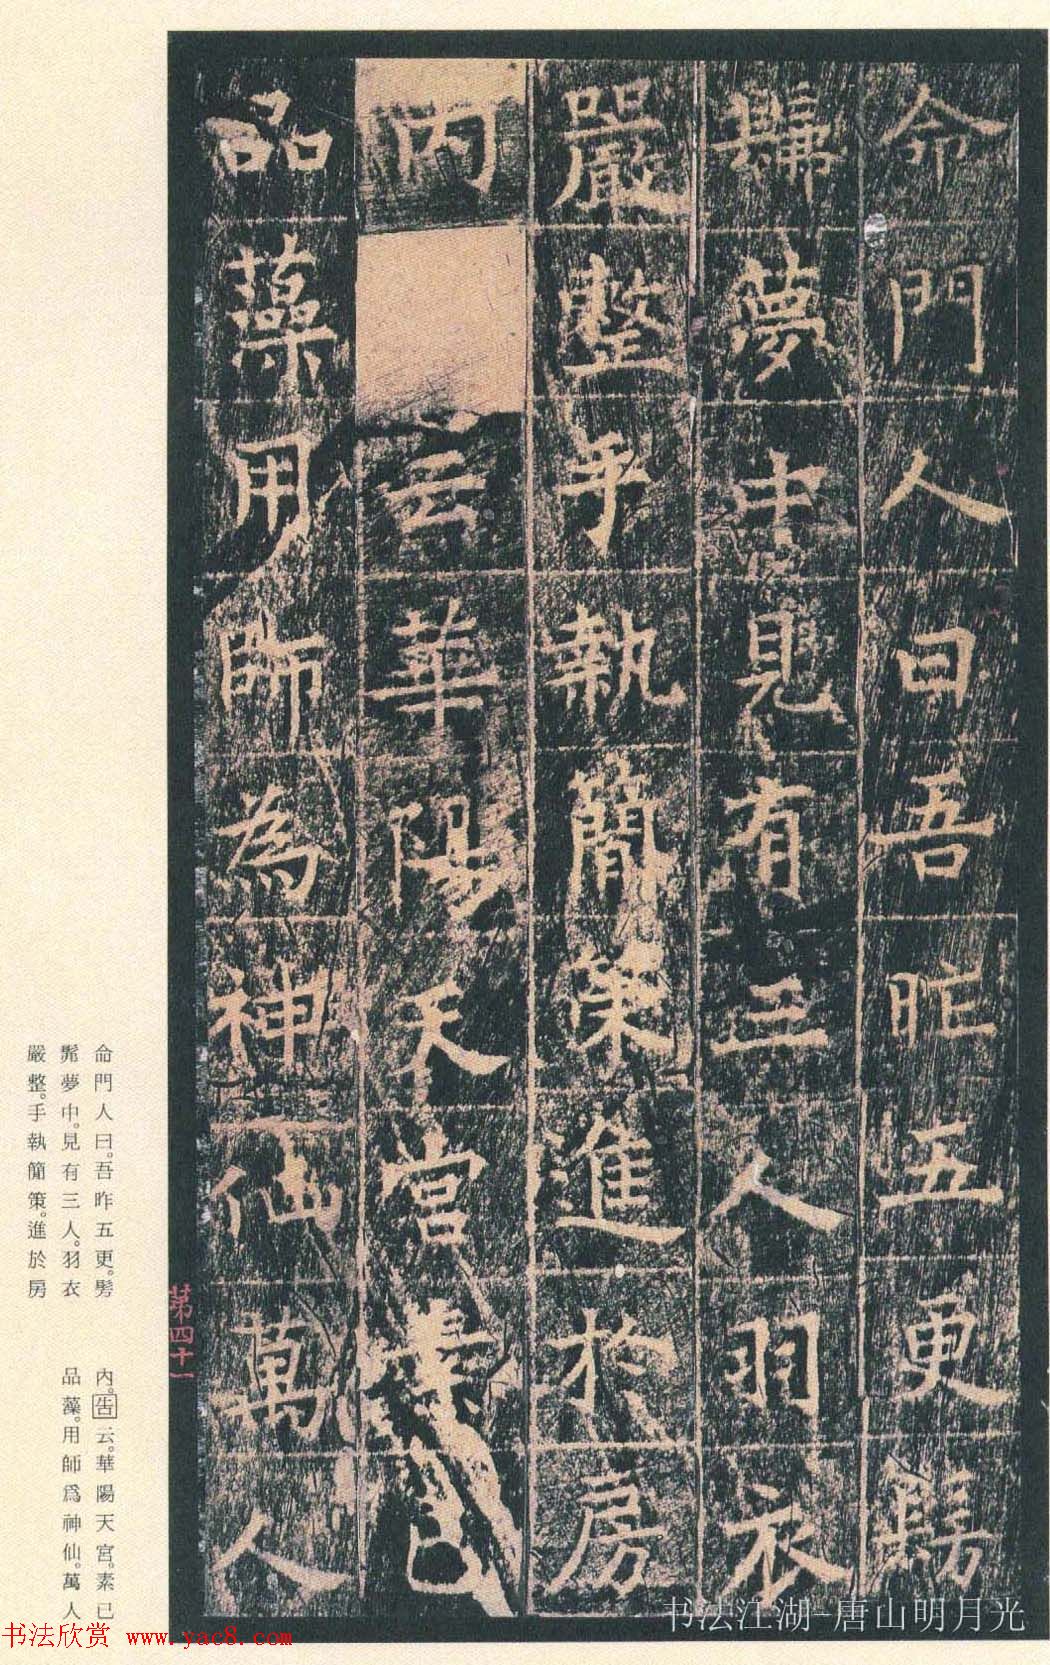 命門人曰吾昨五更髣
髴夢中見有三人羽衣
嚴整手執簡策進於房
内云華陽天宮素已
品藻用師為神仙萬人
第四十一
命門人曰。吾昨五更。髣
髴夢中。見有三人。羽衣
嚴整。手執簡策。進於房
内。告云。華陽天宮。素已
品藻。用師爲神仙。萬人
书法江湖-唐山明月光
书法欣赏 www.yac8.com